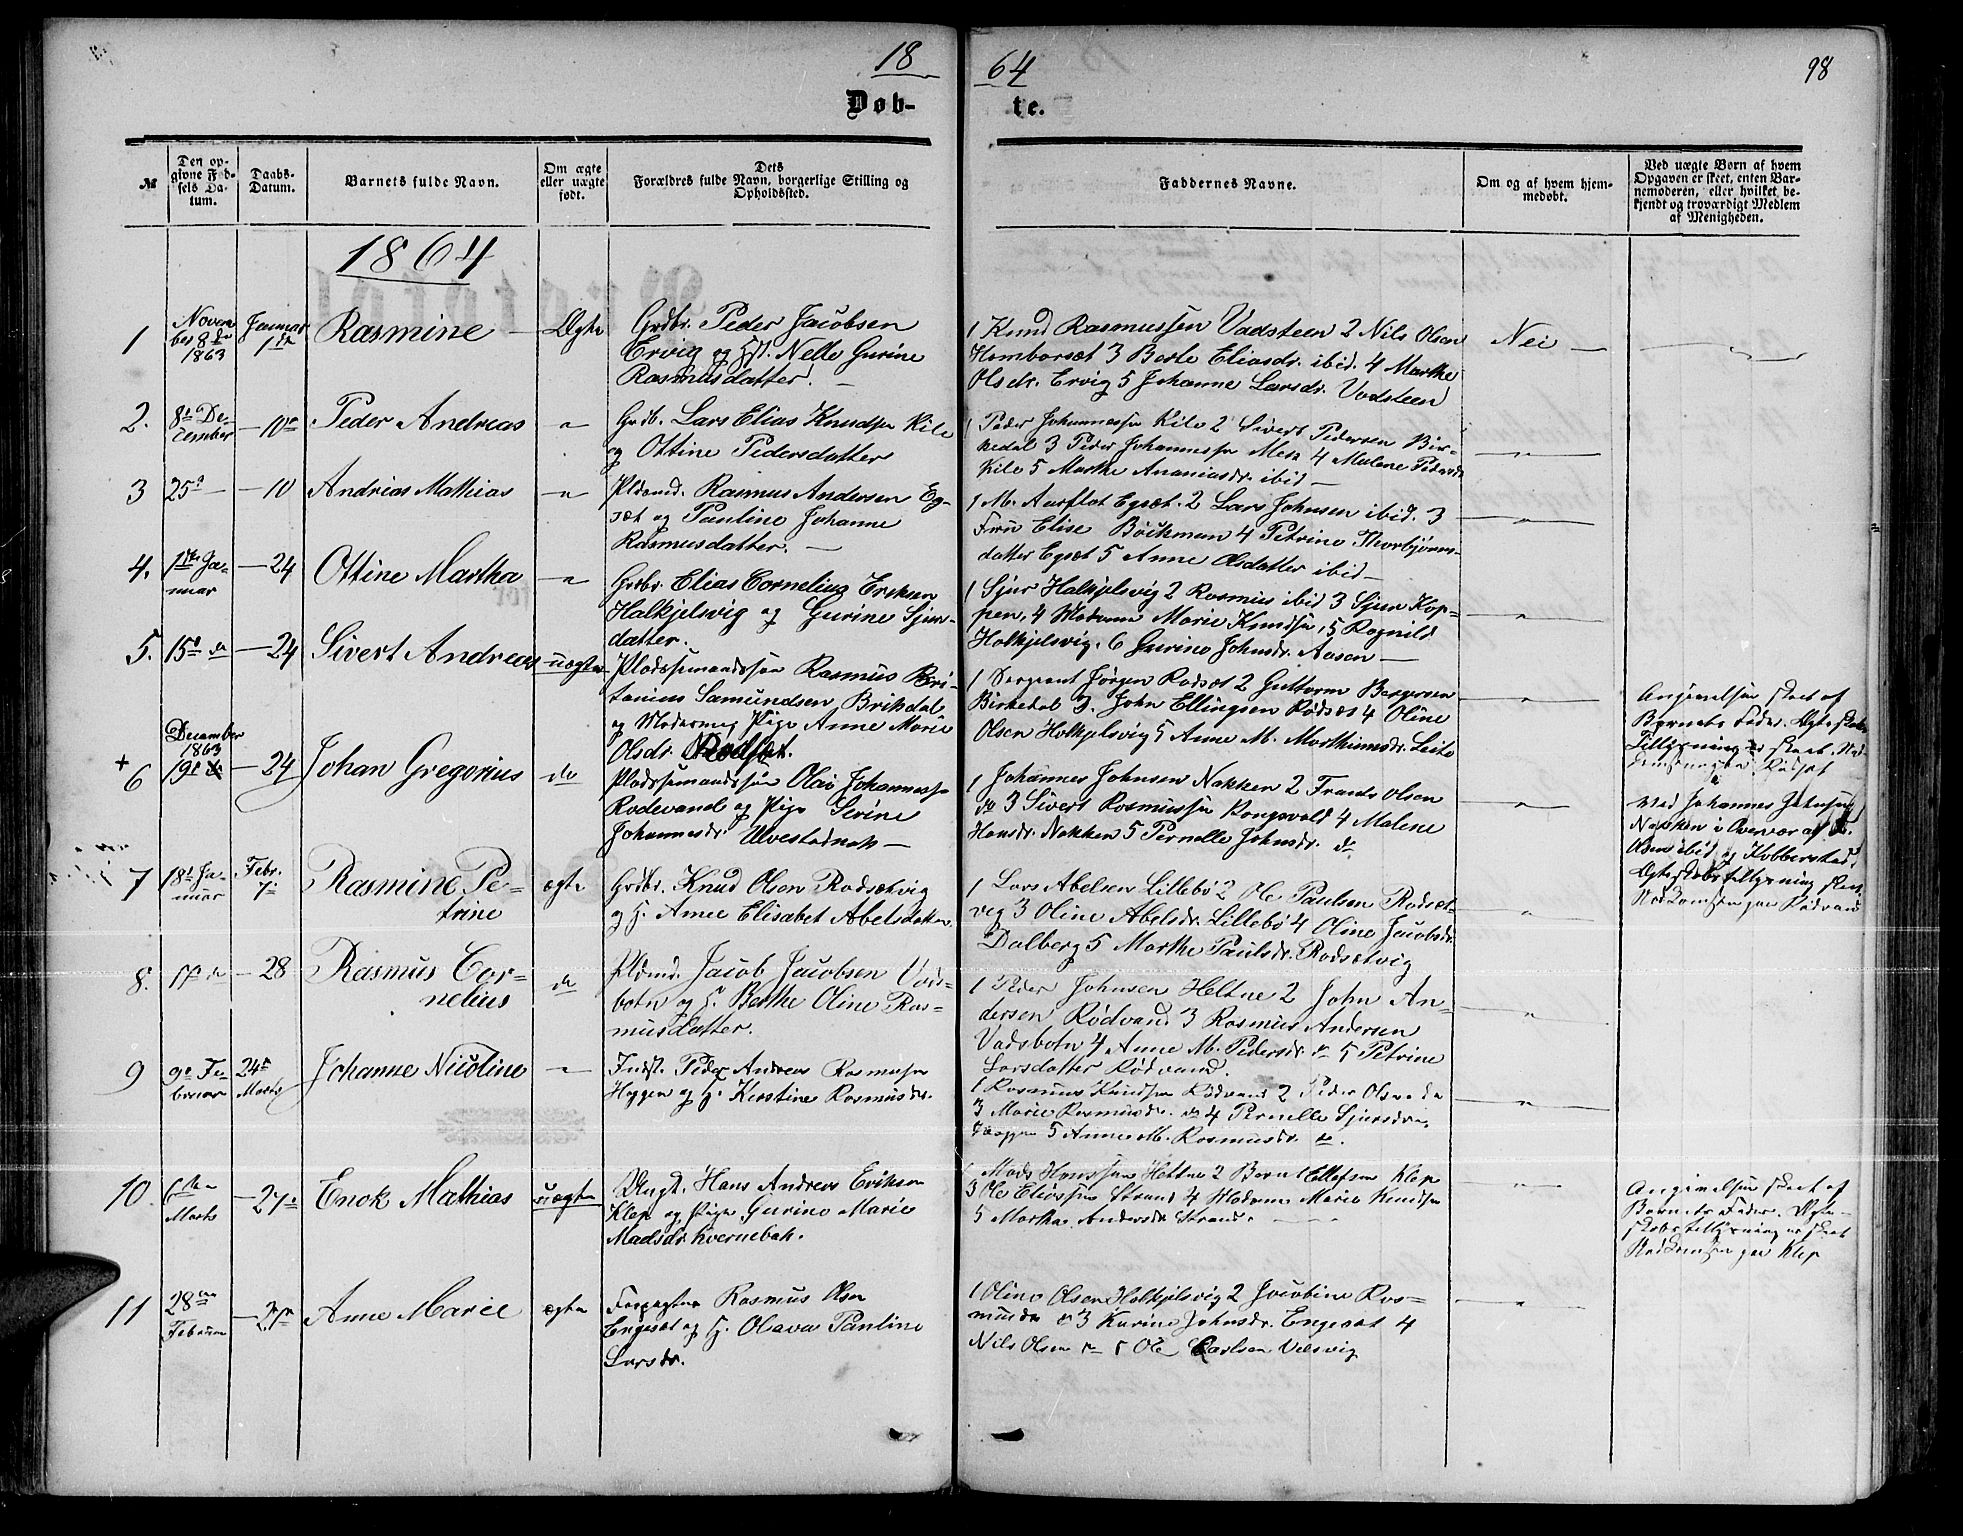 18 64 98
Døb- te.
№
Den op-
givne Fød-
sels Da-
tum.
Daabs-
Datum.
Barnets fulde Navn.
Om ægte
eller uægte
født.
Dets
Forældres fulde Navn, borgerlige Stilling og
Opholdssted.
Faddernes Navne.
Om og af hvem hjem-
medøbt.
Ved uægte Børn af hvem
Opgaven er skeet, enten Bar-
nemoderen, eller hvilket be-
kjendt og troværdigt Medlem
af Menigheden.
1864
1
Novem
ber 8de
1863
Januar
1ste
Rasmine
Ægte
Grdbr. Peder Jacobsen
Ervig og H. Nelle Gurine
Rasmusdatter.
1 Knud Rasmussen Vadsteen 2 Nils Olsen
Hamborsæt 3 Berte Eliasdr. ibid. 4 Marthe
Olsdr. Ervig 5 Johanne Larsdr. Vadsteen
Nei
2.
8de De-
cember
10de
Peder Andreas
"
Grdb. Lars Elias Knudsen Kile
og Ottine Pedersdatter
1 Peder Johannessen Kile 2 Sivert Pedersen Bir-
kedal 3 Peder Johannessen Mek 4 Malene Pedersdr
Kile 5 Marthe Ananiasdr. ibid
"
3
25de
10
Andreas Mathias
"
Pldsmd. Rasmus Andersen Eg-
sæt og Pauline Johanne
Rasmusdatter.
1 M. Aarflot Egsæt. 2 Lars Johnsen ibid. 3
Frøu Elise Böckman 4 Petrine Thorbjørns-
datter Egsæt 5 Anne Olsdatter ibid
"
4.
1ste Ja-
nuar
24
Ottine Martha
"
Grdbr. Elias Cornelius Eriksen
Halkjelsvig og Gurine Sjurs-
datter.
1 Sjur Halkjelsvig 2 Rasmus ibid 3 Sjur Kop-
pen, 4 Madame Marie Knudsen, 5 Ragnild
Halkjelsvig. 6 Gurine Johnsdr. Aasen
"
5.
15de do
24
Sivert Andreas
uægte
Pladsemandssøn Rasmus Bri-
tanius Samundsen Brikdal
og Pige Anne Marie
Olsdr. Rodset.
1 Sergeant Jørgen Rodset 2 Guttorm Bergersen
Birkedal 3. John Ellingsen Rødsæt 4 Oline
Olsen Halkjelsvig 5 Anne M. Marthinusdr. Leite
"
Angivelsen skeet af
Barnets Fader. Ægteskabs
Tillysning er skeet.
+
6
December
1863
19de
24
Johan Gregorius
do
Pladsemandssøn Olai Johannessen
Rødevand og Pige Serine
Johannesdr. Ulvestadnak
1 Johannes Johnsen Nakken 2 Frands Olsen
do 3 Sivert Rasmussen Kongsvold 4 Malene
Hansdr. Nakken 5 Pernelle Johnsdr. do
"
Ved Johannes Johnsen
Nakken i Overvær af F.
Olsen ibid og Kobberstad.
Ægteskabstillysning skeet
7
18de Ja-
nuar
Febr.
7de
Rasmine Pe-
trine
ægte
Grdbr. Knud Olsen Rodsætvig
og H. Anne Elisabet Abelsdatter
1 Lars Abelsen Lillebø 2 Ole Paulsen Rodsæt-
vig 3 Oline Abelsdr. Lillebø 4 Oline Jacobsdr.
Dalberg 5 Marthe Paulsdr. Rodsætvig
"
8.
17de do
28
Rasmus Cor-
nelius
do
Pldsmd. Jacob Jacobsen Vads-
botn og H. Berthe Oline Ras-
musdatter.
1 Peder Johnsen Heltne 2 John An-
dersen Rødvand 3 Rasmus Andersen
Vadsbotn 4 Anne M. Pedersdr. do 5 Petrine
Larsdatter Rødvand.
"
9
9de Fe-
bruar
24de
Marts
Johanne Nicoline
"
Indst. Peder Andreas Rasmussen
Haggen og H. Kirstine Rasmusdr.
1 Rasmus Knudsen Rødvand 2 Peder Olsen do
3 Marie Rasmusdr. do 4 Pernelle Sjursdr.
Haggen 5 Anne M. Rasmusdr. do.
"
10
6te
Marts
27de
Enok Mathias
uægte
Ungk. Hans Andreas Eriksen
Klep og Pige Gurine Marie
Madsdr. Kvernebak.
1 Mads Hanssen Heltne 2 Bernt Ellefsen Klep
3 Ole Eliassen Strand 4 Madame Marie Knudsen
5 Martha Andersdr Strand.
"
Angivelsen skeet af
Barnets Fader. Ægte-
skabstillysning er skeet
11
28de
Februar
27de
Anne Marie
ægte
Forpagter Rasmus Olsen
Engeset og H. Olava Pauline
Larsdr.
1 Oline Olsen Halkjelsvig 2 Jacobine Ras-
musdr do 3 Karine Johnsdr. Engeset 4
Nils Olsen do 5 Ole Carlsen Velsvig
"